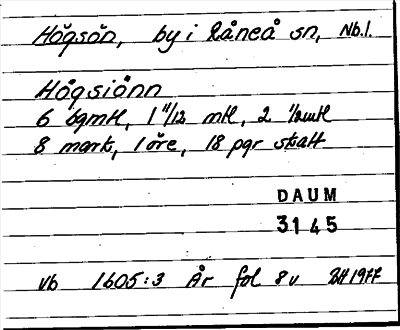 Högsön, by i Råneå sn, Nb.l.
Högsiönn
6 bgmtl, 1 11/12 mtl, 2 1/2mtl
8 mark, 1 öre, 18 pgr skatt
DAUM
3145
Vb 1605:3 År fol 8v BH 1977